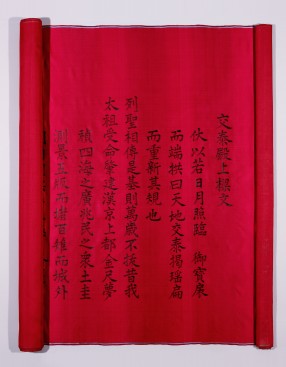 交泰殿上樑文
伏以若日月照臨 御寶扆
而端拱曰天地交泰揭瑤扁
而重新其規也
列聖相傳是基則萬歲不拔昔我
太祖受命肇建漢京上都金尺夢
禎四海之廣兆民之衆土圭
測景五成而揃百種之城外